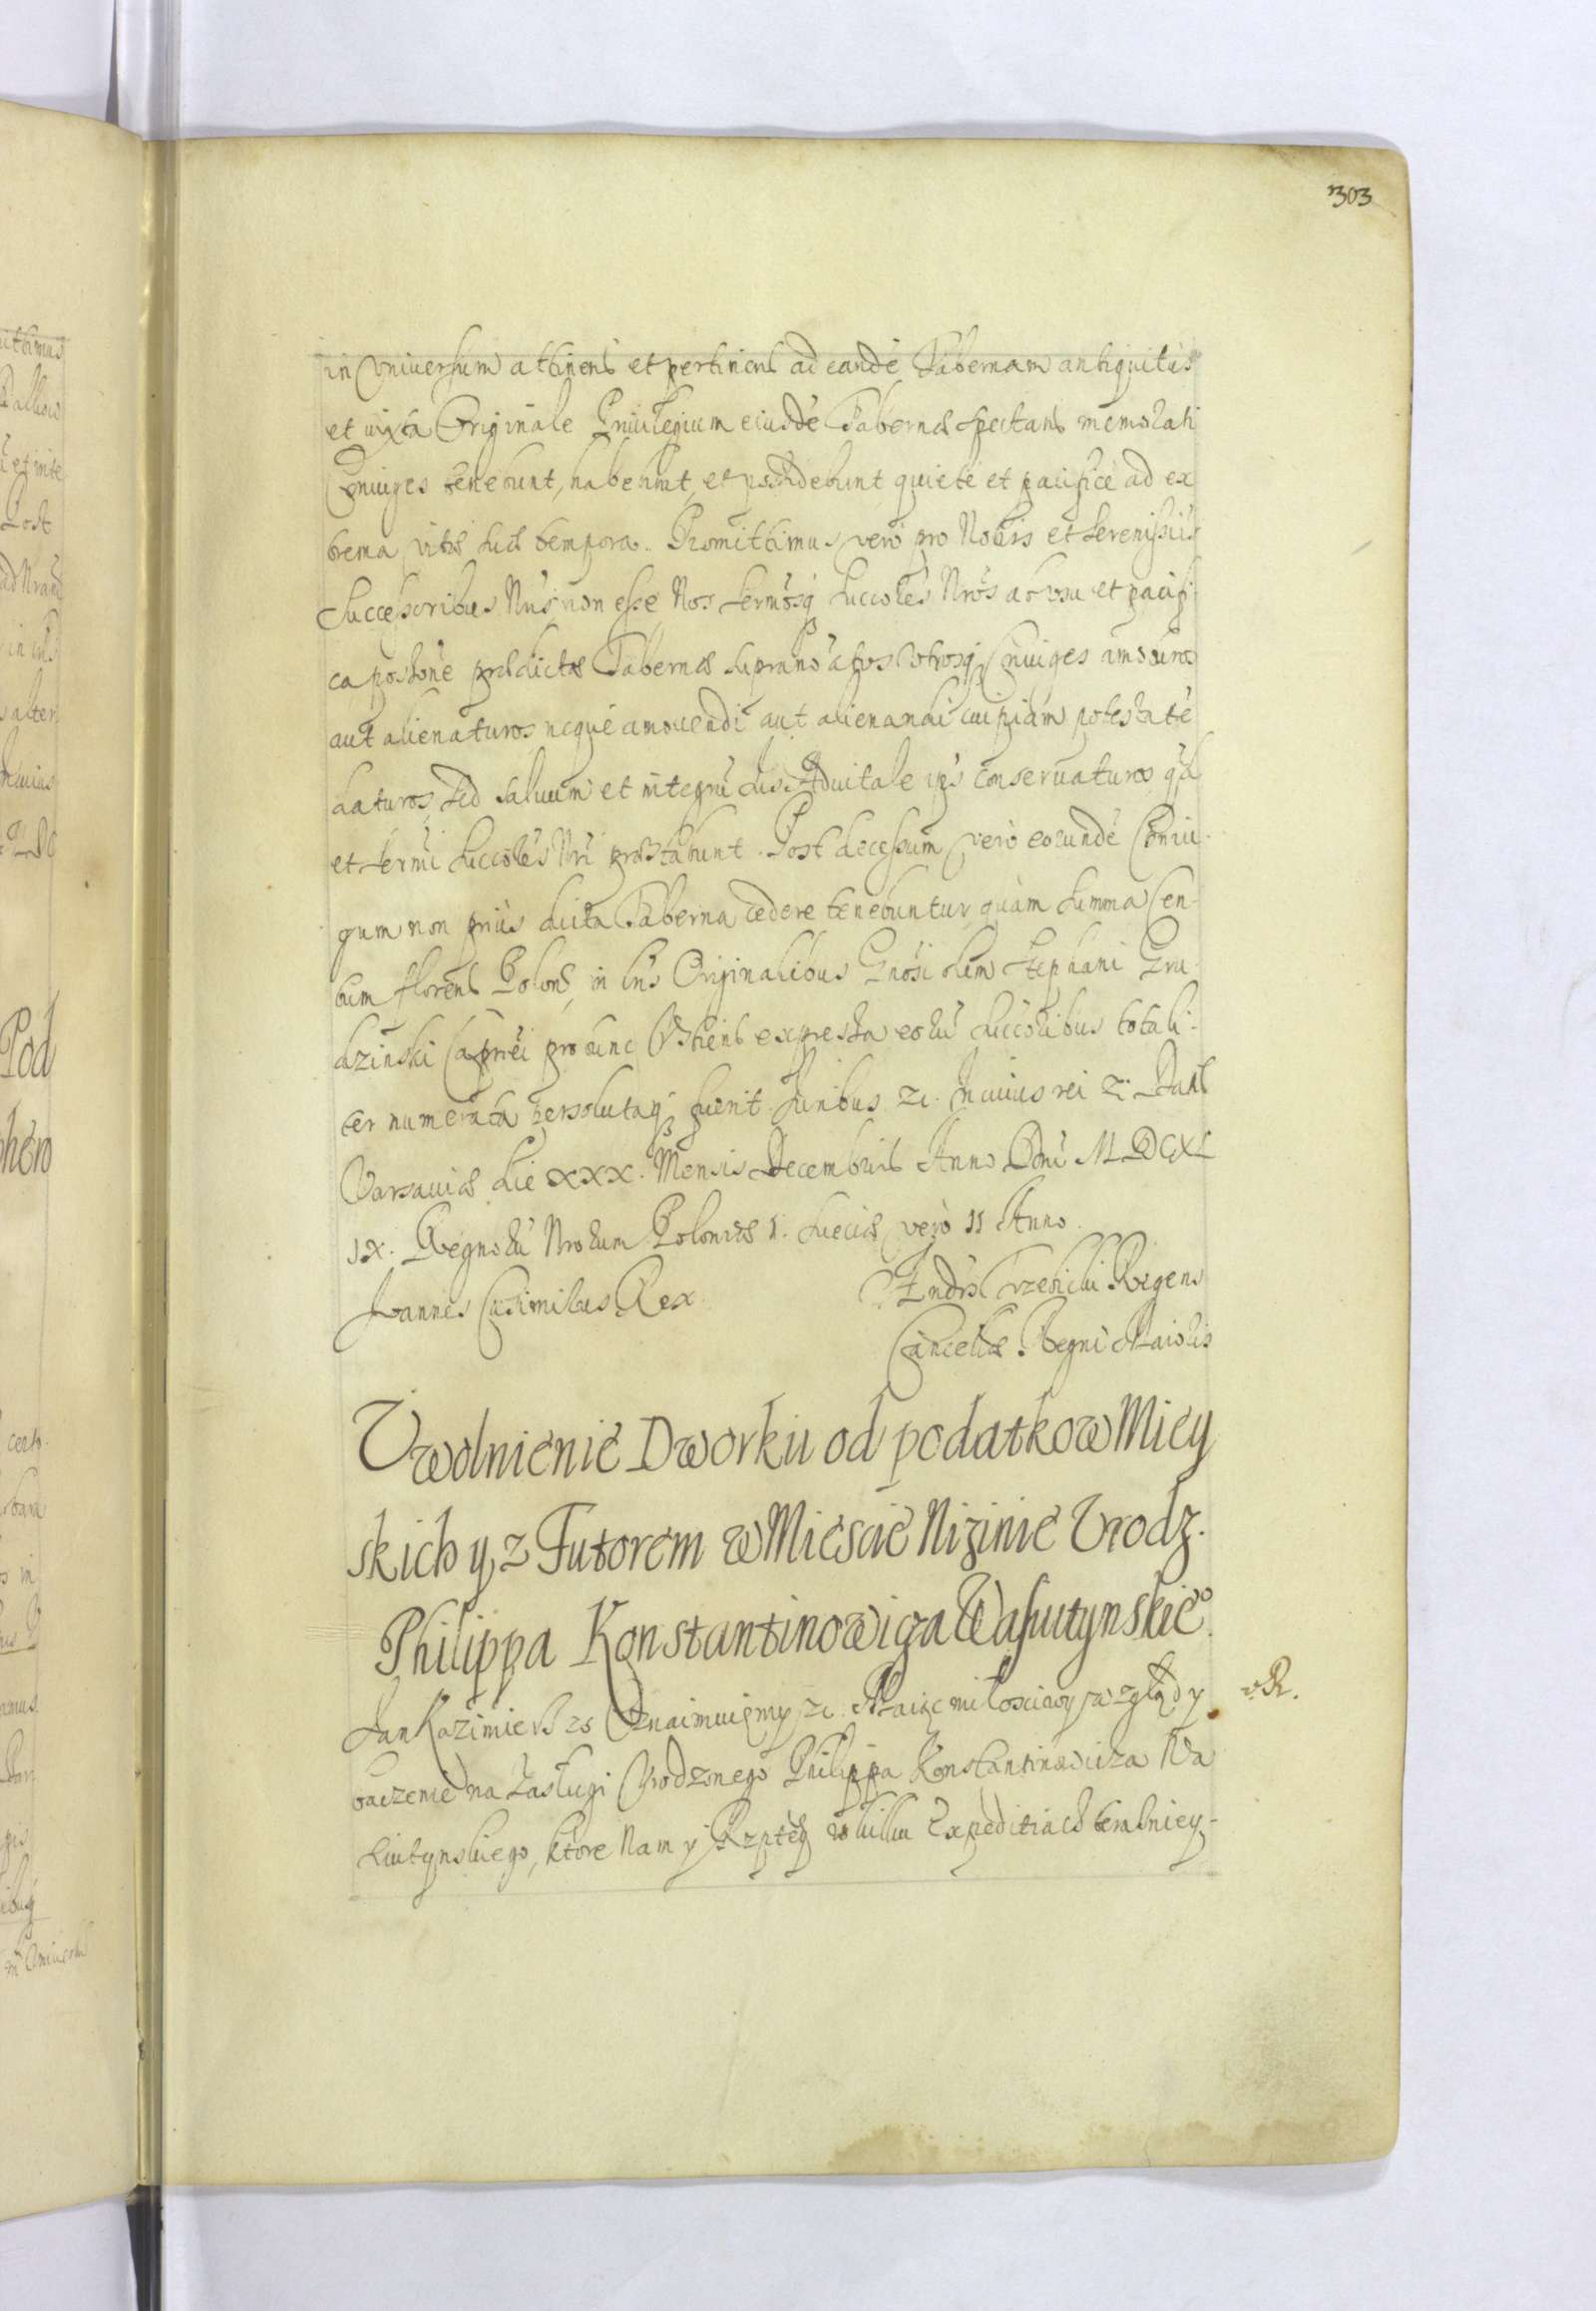 303
in Vniuersum attinens et pertinens ad eandē Tabernam antiquitùs
et iuxta Originale Priuilegium eiusdē Tabernæ spectans memorati
Coniuges tenebunt, habebunt, et possidebunt quietè et pacificè ad ex
trema vitæ suæ tempora. Promittimus verò pro Nobis et Serenissīs
Successoribus Nrīs non esse Nos Sermōsq Succōres Nrōs ab vsu et pacifi
ca possōne prædictæ Tabernæ supranōatos vtrosq Coniuges amoturos
aut alienaturos, neque amouendi aut alienandi cuipiam potestatē
daturos, sed saluum et integrū Ius Aduitale ips conseruaturos qd
et Sermi Succōres Nrī præstabunt. Post decessum verò eorundē Coniu-
gum non priùs dicta Taberna cedere tenebuntur, quàm summa Cen-
tum florens Polons in lris Originalibus Gnōsi olim Stephani Gru-
dzinski Capnēi pro tunc Vstiens expressa eorū Succōribus totali-
ter numerata persolutaq fuerit. Iuribus etc. In cuius rei etc. Datt
Varsauiæ die XXX. Mensis Decembris Anno Dnī MDCXL
IX. Regnorū Nrorum Poloniæ 1. Sueciæ verò 11 Anno.
Joannes Casimirus Rex.
Andrs Trzebicki Regens
Cancellæ Regni Maioris
Vwolnienie Dworku od podatkow Miey
skich y z Futorem w Miescie Nizinie Vrodz.
Philippa Konstantinowicza Wasutynskieo.
Jan Kazimierz etc Oznaimuiemy etc. Maiąc miłosciwy wzgląd y
R.
baczenie na zasługi Vrodzonego Philippa Konstantinowicza Wa
siutynskiego, ktore Nam y Rzptey w kilku Expeditiach teraʒniey-